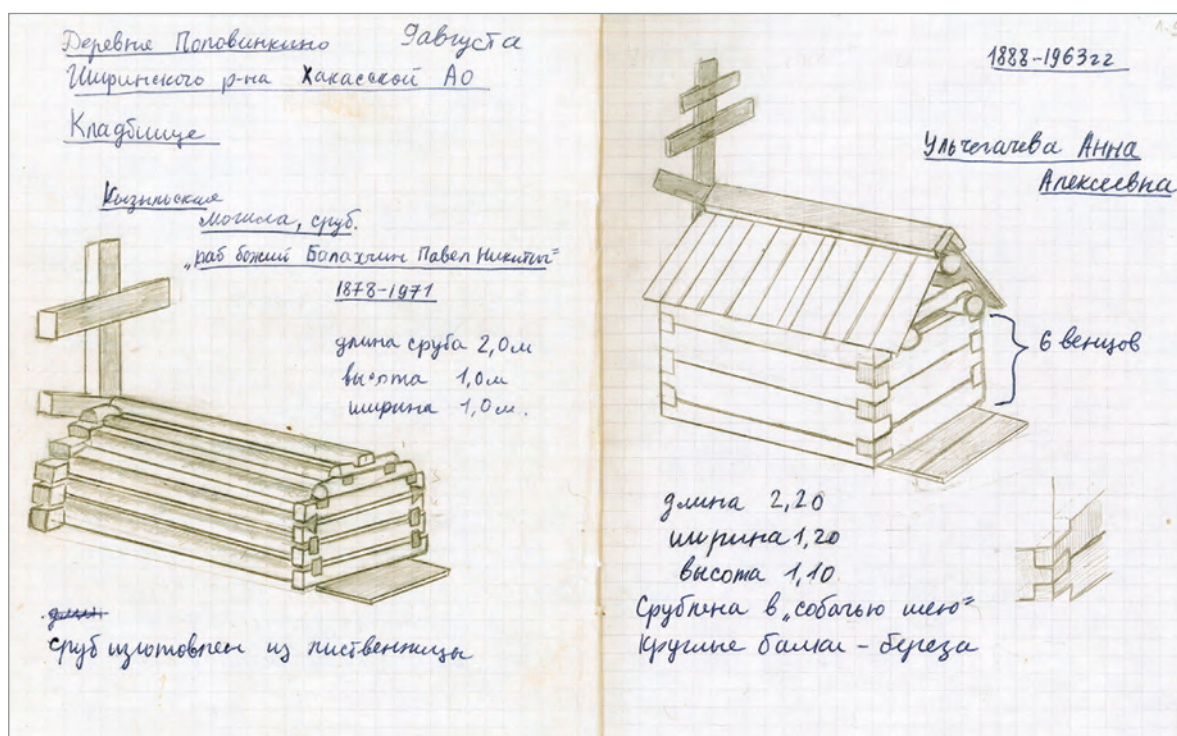 Деревня Половинкино 9августа
Ширинского р-на Хакасской АО
Кладбище
Кызыльские
могила, сруб.
„раб божий Балахчин Павел Никитич“
1878-1971
длина сруба 2,0м
высота 1,0м
ширина 1,0м.
сруб изготовлен из лиственницы
1888-1963гг
Ульчегачева Анна
Алексеевна
6 венцов
длина 2,20
ширина 1,20
высота 1,10
Срублена в „собачью шею“
Круглые балки - береза